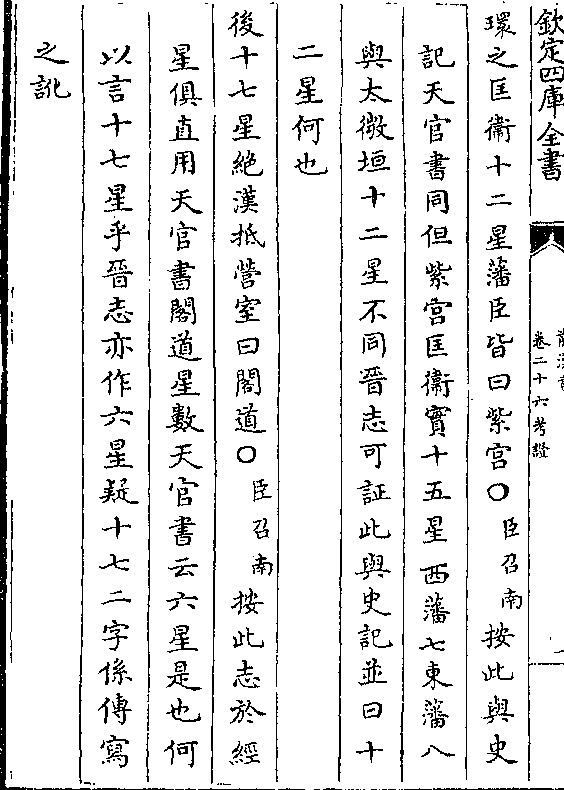 欽定四庫全書
卷二十六考證
環之匡衞十二星藩臣皆曰紫宫〇臣召南按此與史
記天官書同但紫宫匡衞實十五星西藩七東藩八
與太微垣十二星不同晉志可証此與史記並曰十
二星何也
後十七星絶漢抵營室曰閣道〇臣召南按此志於經
星俱直用天官書閣道星數天官書云六星是也何
以言十七星乎晉志亦作六星疑十七二字係傳寫
之訛